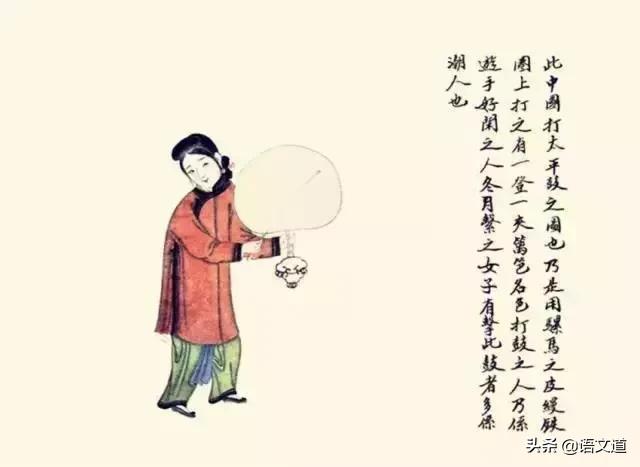 此中國打太平鼓之圖也乃是用騾馬之皮縵鉄
圈上打之有一登一夫萬笆名色打鼓之人乃係
遊手好閑之人冬月擊之女子有擊此鼓者多係
潮人也
头条 @语文道